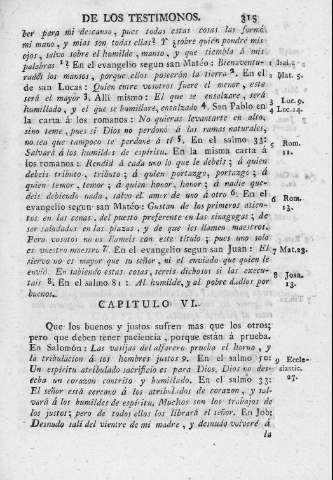 DE LOS TESTIMONOS. 315
ber para mi descanso, pues todas estas cosas las formó
mi mano, y mias son todas ellas? Y ¿sobre quién pondré mis
ojos, salvo sobre el humilde, manso, y que tiembla á mis
palabras 1? En el evangelio segun san Matéo: Bienaventu- 1 Isai.
radós los mansos, porque ellos poseerán la tierra 2. En el 2 Mat. 5.
de san Lucas: Quien entre vosotros fuere el menor, este
será el mayor 3. Allí mismo: El que se ensalzare, será 3 Luc. 9.
humillado, y el que se humillare, ensalzado 4. San Pablo en 4 Luc. 14.
la carta á los romanos: No quieras levantarte en alto,
sino teme, pues si Dios no perdonó á las ramas naturales,
no sea que tampoco te perdone á tí 5. En el salmo 33: 5 Rom.
Salvará á los humildes de espíritu. En la misma carta á 11.
los romanos: Rendid á cada uno lo que le debeis; á quien
debeis tributo, tributo; á quien portazgo, portazgo; á
quien temor, temor; á quien honor, honor; á nadie que-
deis debiendo nada, salvo el amor de uno á otro 6: En el 6 Rom.
evangelio segun san Matéo: Gustan de los primeros asien- 13.
tos en las cenas, del puesto preferente en las sinagogas, de
ser saludados en las plazas, y de que les llamen maestros.
Pero vosotros no os llameis con este título; pues uno solo
es vuestro maestro 7. En el evangelio segun san Juan: El 7 Mat. 23.
siervo no es mayor que su señor, ni el enviado que quien le
envió. En sabiendo estas cosas, sereis dichosos si las execu-
tais 8. En el salmo 81: Al humilde, y al pobre dadlos por 8 Joan.
buenos. 13.
CAPITULO VI.
Que los buenos y justos sufren mas que los otros;
pero que deben tener paciencia, porque están á prueba.
En Salomón: Las vasijas del alfarero prueba el horno, y
la tribulacion á los hombres justos 9. En el salmo 50: 9 Ecle-
Un espíritu atribulado sacrificio es para Dios, Dios no des- siastic.
echa un corazon contrito y humillado. En el salmo 33: 27.
El señor está cercano á los atribulados de corazon, y sal-
vará á los humildes de espíritu. Muchos son los trabajos de
los justos; pero de todos ellos los librará el señor. En Job:
Desnudo salí del vientre de mi madre, y desnudo volveré á
la